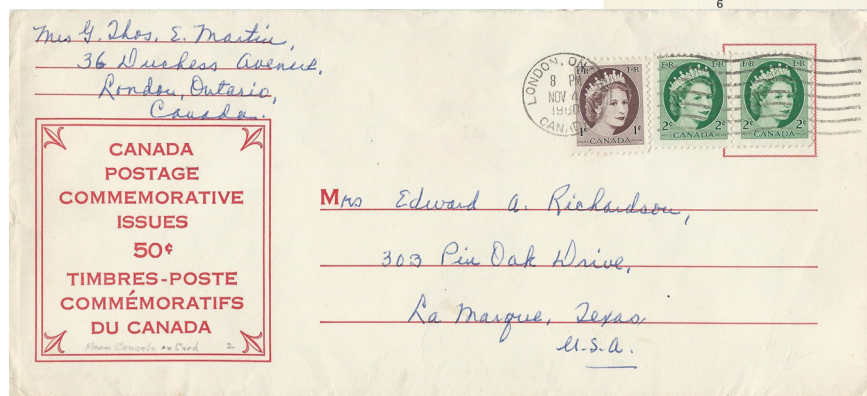 6
Mrs G. Thos. E. Martin,
36 Duchess Avenue,
London, Ontario,
Canada.
LONDON, ON
8 PM
NOV 4
1960
CANAD
EIIR EIIR
1¢ 1¢
CANADA
EIIR EIIR
2¢ 2¢
CANADA
EIIR EIIR
2¢ 2¢
CANADA
CANADA
POSTAGE
COMMEMORATIVE
ISSUES
50¢
TIMBRES-POSTE
COMMÉMORATIFS
DU CANADA
on Card 2
Mrs Edward A. Richardson,
303 Pin Oak Drive,
La Marque, Texas,
U.S.A.